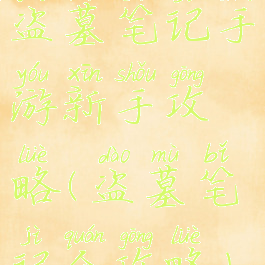 盗墓笔记手
yóu xīn shǒu gōng
游新手攻
lüè dào mù bǐ
略(盗墓笔
jì quán gōng lüè
记全攻略)